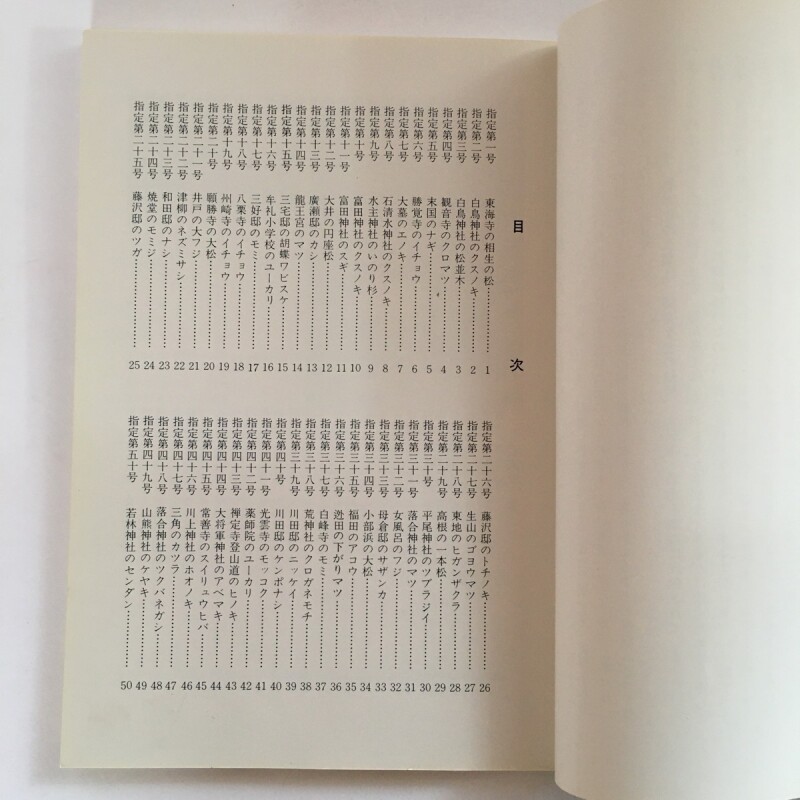 目次
指定第一号 東海寺の相生の松 1
指定第二号 白鳥神社のクスノキ 2
指定第三号 白鳥神社の松並木 3
指定第四号 観音寺のクロマツ 4
指定第五号 末国のナギ 5
指定第六号 勝覚寺のイチョウ 6
指定第七号 大墓のエノキ 7
指定第八号 石清水神社のクスノキ 8
指定第九号 水主神社のいのり杉 9
指定第十号 富田神社のクスノキ 10
指定第十一号 富田神社のスギ 11
指定第十二号 大井の円座松 12
指定第十三号 廣瀬邸のカシ 13
指定第十四号 龍王宮のマツ 14
指定第十五号 三宅邸の胡蝶ワビスケ 15
指定第十六号 牟礼小学校のユーカリ 16
指定第十七号 三好邸のモミ 17
指定第十八号 八栗寺のイチョウ 18
指定第十九号 州崎寺のイチョウ 19
指定第二十号 願勝寺の大松 20
指定第二十一号 井戸の大フジ 21
指定第二十二号 津柳のネズミサシ 22
指定第二十三号 和田邸のナシ 23
指定第二十四号 焼堂のモミジ 24
指定第二十五号 藤沢邸のツガ 25
指定第二十六号 藤沢邸のトチノキ 26
指定第二十七号 生山のゴヨウマツ 27
指定第二十八号 東地のヒガンザクラ 28
指定第二十九号 高根の一本松 29
指定第三十号 平尾神社のツブラジイ 30
指定第三十一号 落合神社のマツ 31
指定第三十二号 女風呂のフジ 32
指定第三十三号 母倉邸のサザンカ 33
指定第三十四号 小部浜の大松 34
指定第三十五号 福田のアコウ 35
指定第三十六号 迯田の下がりマツ 36
指定第三十七号 白峰寺のモミ 37
指定第三十八号 荒神社のクロガネモチ 38
指定第三十九号 川田邸のニッケイ 39
指定第四十号 川田邸のケンポナシ 40
指定第四十一号 光雲寺のモッコク 41
指定第四十二号 薬師院のユーカリ 42
指定第四十三号 禅定寺登山道のヒノキ 43
指定第四十四号 大将軍神社のアベマキ 44
指定第四十五号 常善寺のスイリュウヒバ 45
指定第四十六号 川上神社のホオノキ 46
指定第四十七号 三角のカツラ 47
指定第四十八号 落合神社のツクバネガシ 48
指定第四十九号 山熊神社のケヤキ 49
指定第五十号 若林神社のセンダン 50